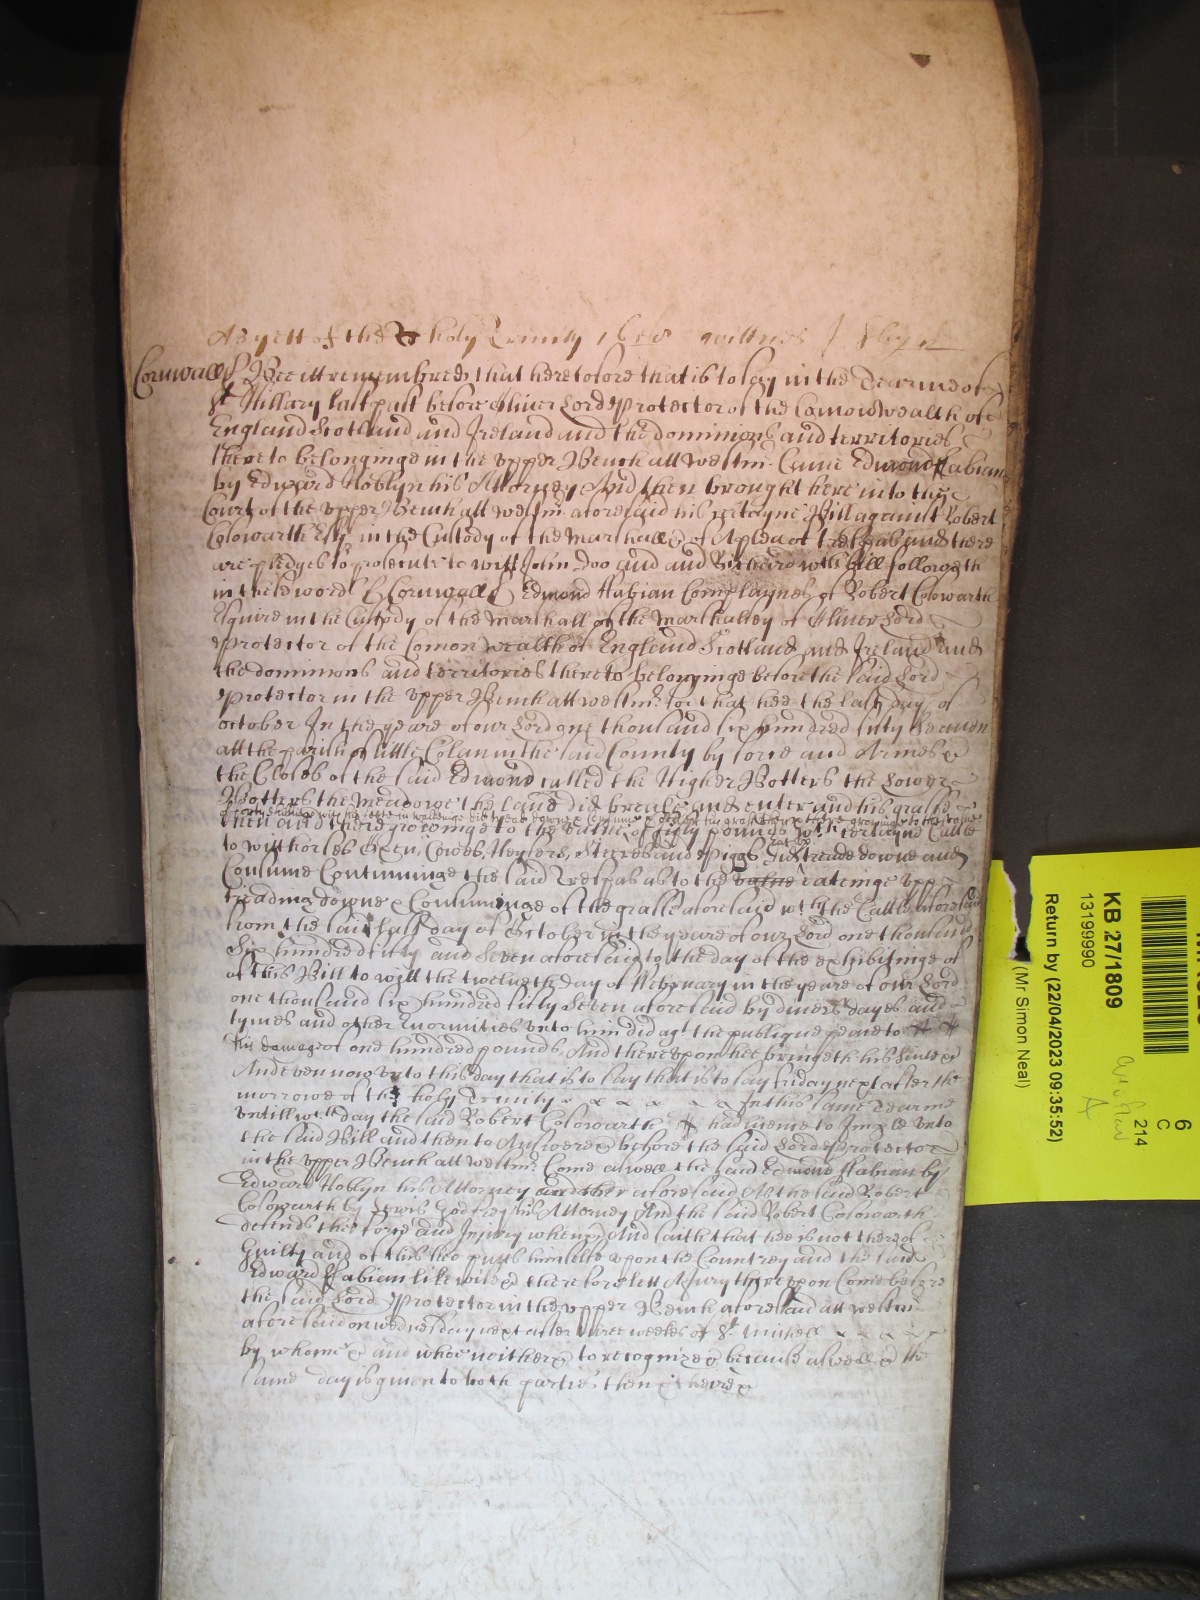 As yett of the holy Trinity 1658 wittnes
Cornwall ss Bee itt remembred that heretofore that is to say in the Tearme of
St Hillary last past before Oliver Lord Protector of the Comonwealth of
England Scotland and Ireland and the dominions and territories
thereto belonginge in the vpper Bench att westmr Came Edmond Fabian
by Edward Hoblyn his Attorney And then brought here into the
Court of the vpper Bench att westm aforesaid his certayne Bill against Robert
Colowarth Esqr in the Custody of the Marshall &c of A plea of trespas and there
are pledges to prosecute to witt John Doo and and Richard wch bill followeth
in theis words Cornwall ss Edmond Fabian Complaynes of Robert Colowarth
Esquire in the Custody of the Marshall of the Marshalsey of Oliver Lord
Protector of the Comon wealth of England Scotland and Ireland and
the dominions and territories thereto belonginge before the said Lord
Protector in the vpper Bench att westmr for that hee the last day of
October In the yeare of our Lord one thousand six hundred fifty seaven
att the parish of little Colan in the said County by force and Armes &c
the Closes of the said Edmond called the Higher Botters the Lower
Botters the Meadowe the did breake and enter and his grasse
with his feete in walkinge did tread downe & Consume & other his grasse then & there growinge to the value
then and there groweinge to the value of fifty pounds wth certayne Cattle
eat vp
to witt horses Oxen, Cowes, Heyfers, Steeres and Piggs did treade downe and
Consume Continuinge the said Trespas as to the value eatinge vpp
treadinge downe & Consuminge of the grasse aforesaid wth the Cattle aforesaid
from the said last day of October in the yeare of our Lord one thousand
Six hundred fifty and Seven aforesaid to the day of the exhibitinge of
of this Bill to witt the twelueth day of February in the yeare of our Lord
one thousand six hundred fifty Seven aforesaid by divers dayes and
tymes and other Enormities vnto him did agt the publique peace to
his damage of one hundred pounds And therevpon hee bringeth his Suite &c
And even now vnto this day that is to say that is to say friday next after the
morrowe of the holy Trinity In this same Tearme
vntill wch day the said Robert Colowarth had licence to Imple vnto
the said Bill and then to Answere &c before the said Lord Protector
in the vpper Bench att westmr Come aswell the said Edmond Fabian by
Edward Hoblyn his Attorney aforesaid As the said Robert
Colowarth by Lewis Godfrey his Attorney And the said Robert Colowarth
defends the force and Injury when &c And saith that hee is not thereof
Guilty and of this hee putts himselfe vpon the Countrey and the said
Edward Fabian likewise &c therefore lett A Jury therevpon Come before
the said Lord Protector in the vpper Bench aforesaid att westmr
aforesaid on wednesday next after three weekes of St Michell
by whome &c and whoe neither &c to recognize &c because aswell &c the
same day is given to both parties then & there &c
KB 27/1809
13199990
Return by (22/04/2023 09:35:52)
(Mr Simon Neal)
6
C
214